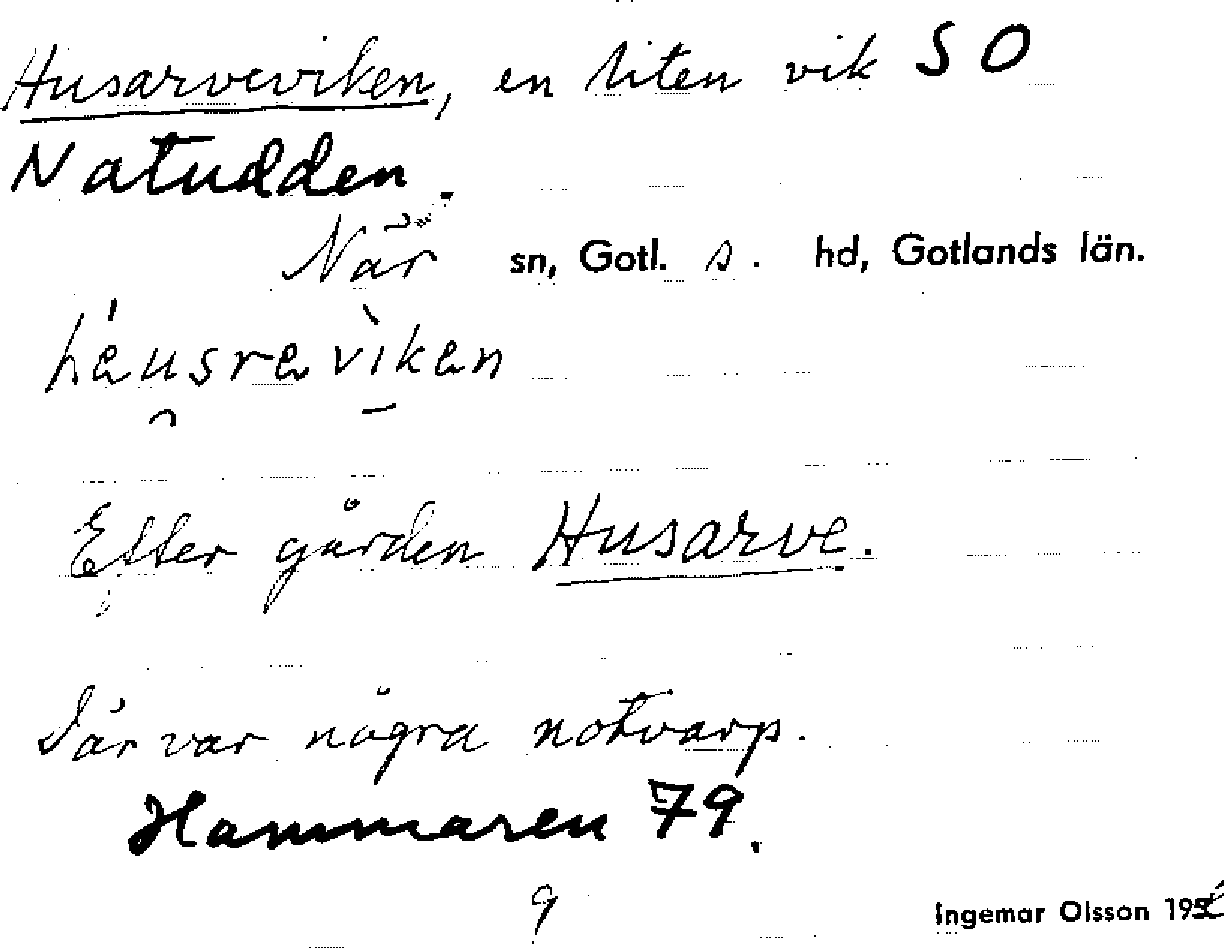 Husarveviken, en liten vik SO
Natudden.
När sn, Gotl. s. hd, Gotlands län.
héusreviken
Efter gården Husarve.
Där var några notvarp.
Hammaren 79.
9
Ingemar Olsson